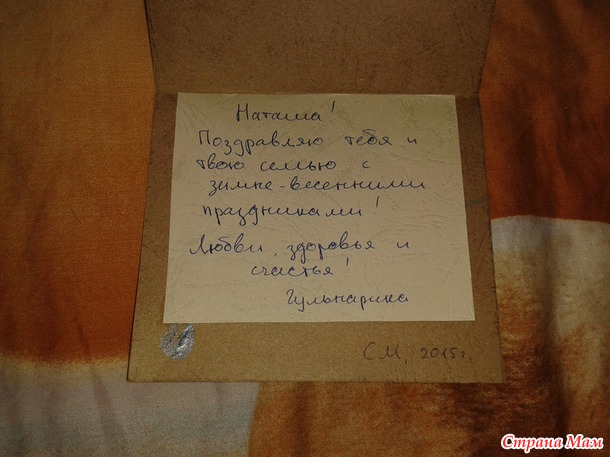 Наташа!
Поздравляю тебя и
твою семью с
зимне-весенними
праздниками!
Любви, здоровья и
счастья!
Гульнарика
СМ, 2015г.
Страна Мам